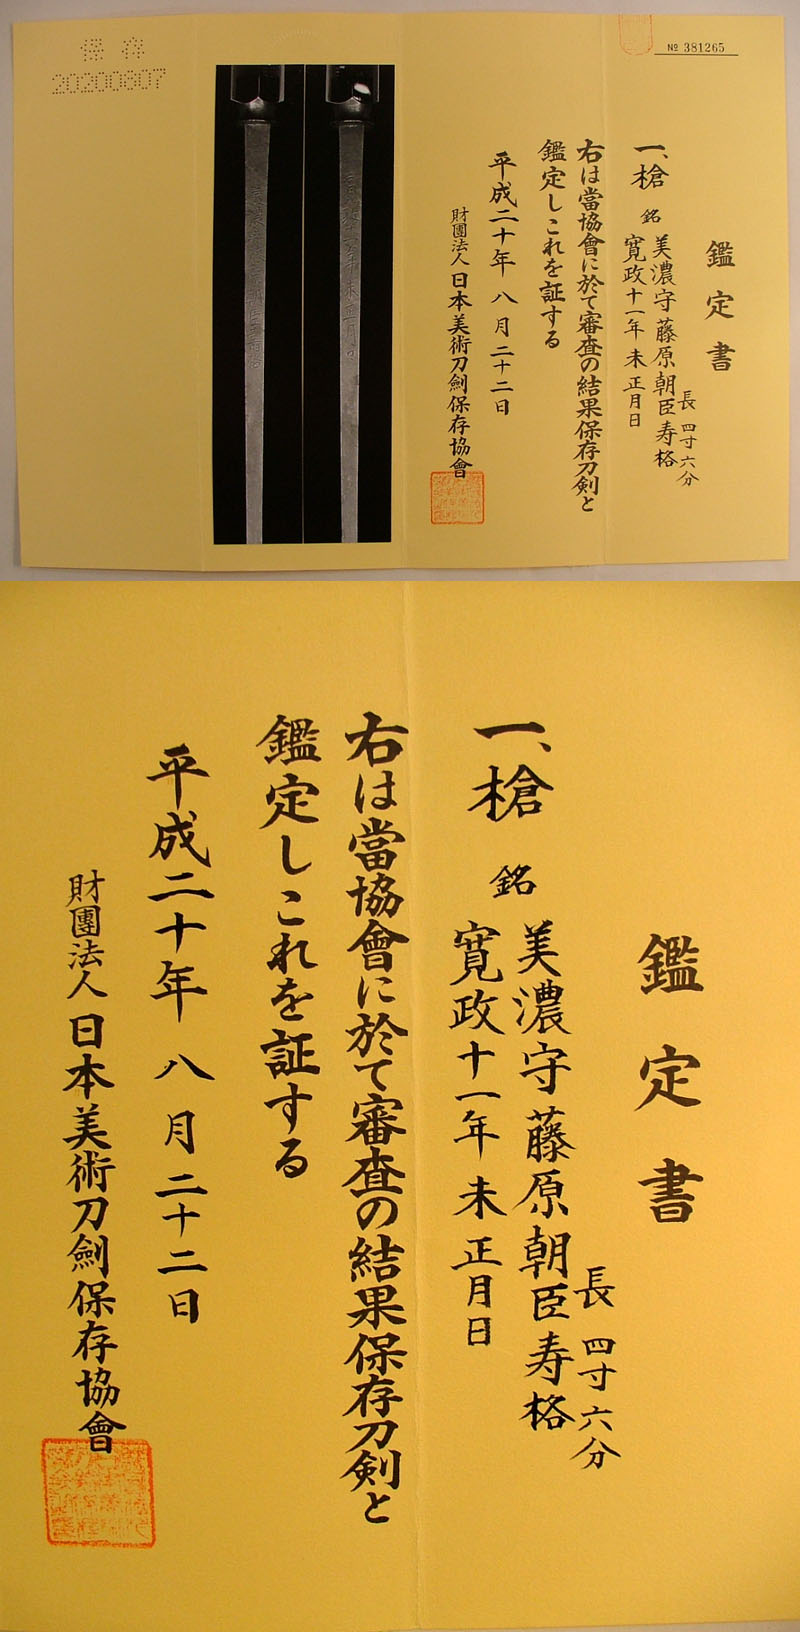 保存
20200807
№ 381265
鑑定書
一、槍 銘 美濃守藤原朝臣寿格
寛政十一年未正月日
長四寸六分
右は當協會に於て審査の結果保存刀剣と
鑑定しこれを証する
平成二十年八月二十二日
財團法人日本美術刀劍保存協會
鑑定書
長四寸六分
一、槍 銘 美濃守藤原朝臣寿格
寛政十一年未正月日
右は當協會に於て審査の結果保存刀剣と
鑑定しこれを証する
平成二十年八月二十二日
財團法人日本美術刀劍保存協會